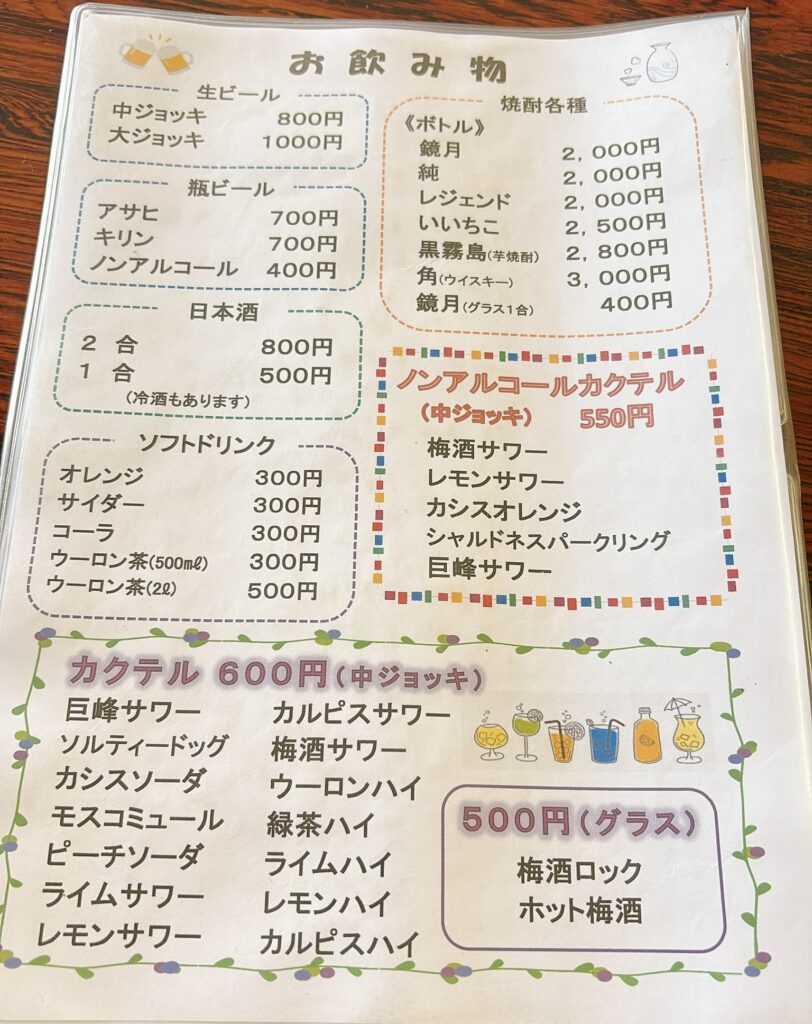 お飲み物
生ビール
中ジョッキ 800円
大ジョッキ 1000円
瓶ビール
アサヒ 700円
キリン 700円
ノンアルコール 400円
日本酒
2 合 800円
1 合 500円
(冷酒もあります)
ソフトドリンク
オレンジ 300円
サイダー 300円
コーラ 300円
ウーロン茶(500㎖) 300円
ウーロン茶(2ℓ) 500円
焼酎各種
《ボトル》
鏡月 2,000円
純 2,000円
レジェンド 2,000円
いいちこ 2,500円
黒霧島(芋焼酎) 2,800円
角(ウイスキー) 3,000円
鏡月(グラス1合) 400円
ノンアルコールカクテル
(中ジョッキ) 550円
梅酒サワー
レモンサワー
カシスオレンジ
シャルドネスパークリング
巨峰サワー
カクテル 600円(中ジョッキ)
巨峰サワー
ソルティードッグ
カシスソーダ
モスコミュール
ピーチソーダ
ライムサワー
レモンサワー
カルピスサワー
梅酒サワー
ウーロンハイ
緑茶ハイ
ライムハイ
レモンハイ
カルピスハイ
500円(グラス)
梅酒ロック
ホット梅酒